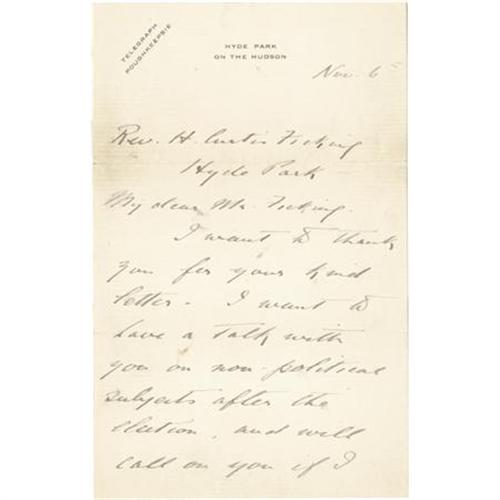 TELEGRAPH
POUGHKEEPSIE
HYDE PARK
ON THE HUDSON
Nov. 6th
Rev. H. Curtis Ficking
Hyde Park
My dear Mr. Ficking.
I want to thank
you for your kind
letter - I want to
have a talk with
you on non-political
subjects after the
election, and will
call on you if I